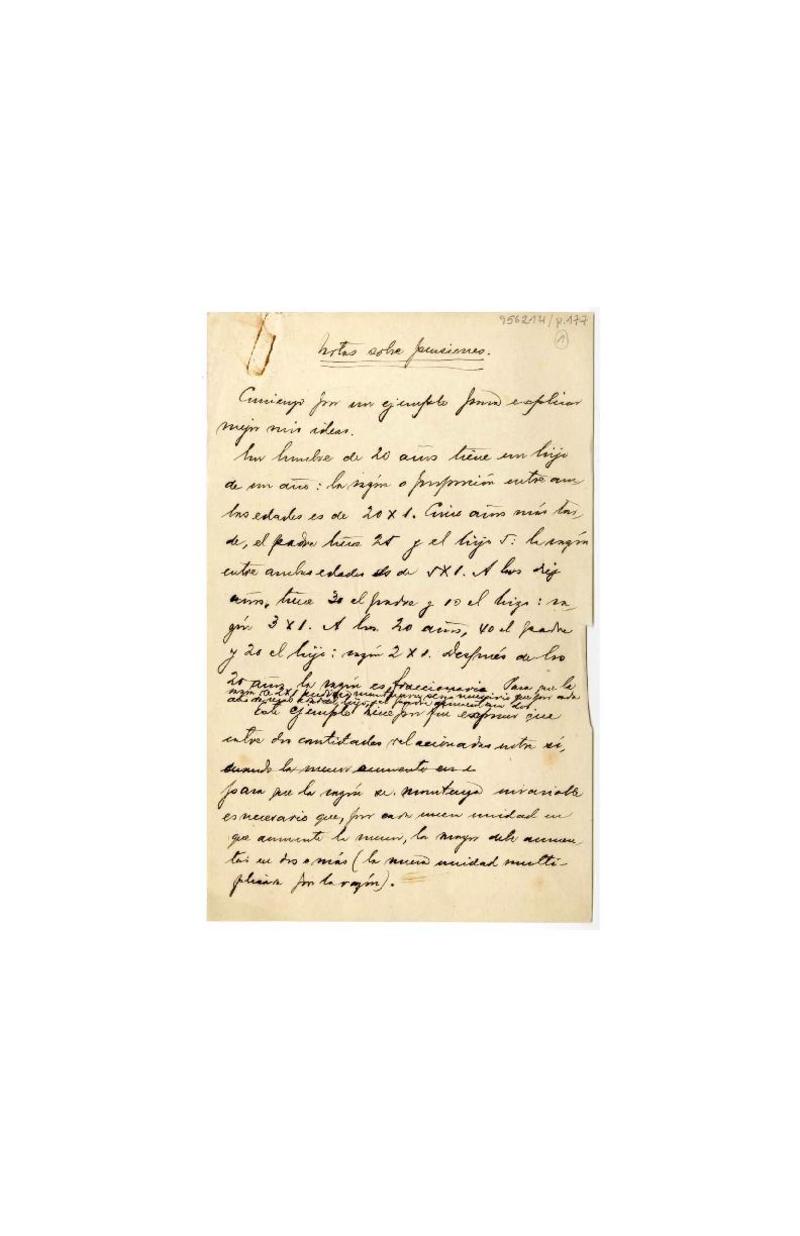 956214/p.177
1
Notas sobre pensiones.
Comienzo por un ejemplo para explicar
mejor mis ideas.
Un hombre de 20 años tiene un hijo
de un año: la razón o proporción entre am
bas edades es de 20 X 1. Cinco años más tar_
de, el padre tiene 25 y el hijo 5: la razón
entre ambas edades es de 5X1. A los diez
años, tiene 30 el padre y 10 el hijo: ra_
zón 3 X 1. A los 20 años, 40 el padre
y 20 el hijo: razón 2 X 1. Después de los
20 años la razón es fraccionaria. Para que la
razón de 2X1 pudiera mantenerse sería necesario que por cada
año de más el hijo, el padre aumentara dos.
Este ejemplo tiene por fin expresar que
entre dos cantidades relacionadas entre sí,
cuando la menor aumenta en
para que la razón se mantenga invariable
es necesario que, por cada nueva unidad en
que aumente la menor, la mayor debe aumen_
tar en dos o más (la nueva unidad multi-
plicada por la razón).